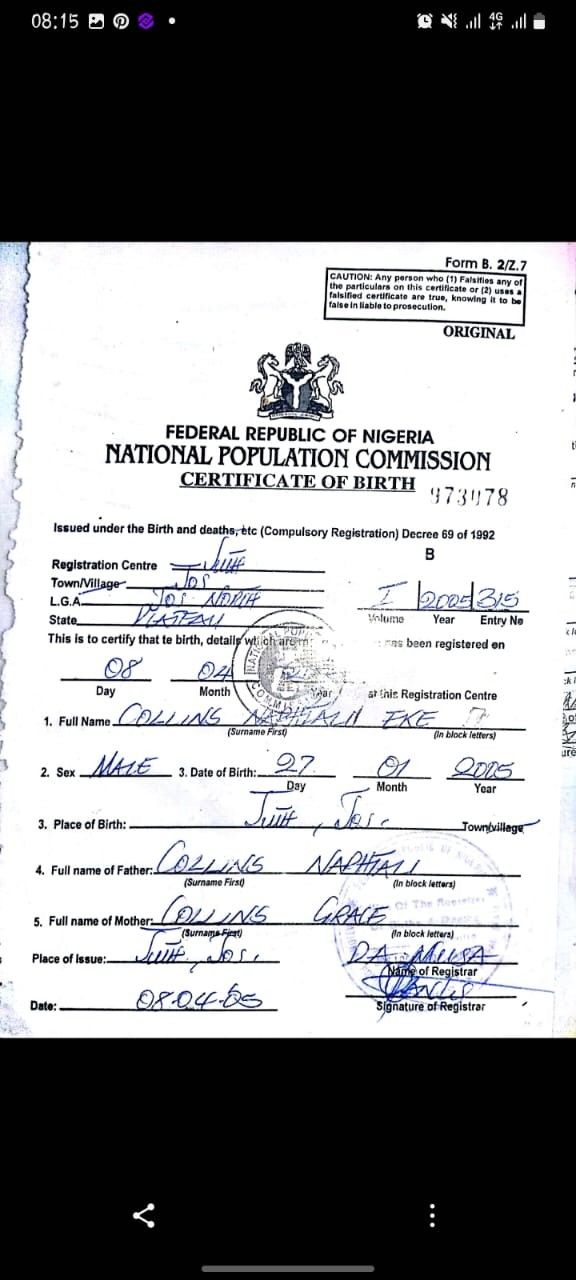 08:15
4G
Form B. 2/Z.7
CAUTION: Any person who (1) Falsifies any of
the particulars on this certificate or (2) uses a
falsified certificate are true, knowing it to be
false in liable to prosecution.
ORIGINAL
FEDERAL REPUBLIC OF NIGERIA
NATIONAL POPULATION COMMISSION
CERTIFICATE OF BIRTH
973978
Issued under the Birth and deaths, etc (Compulsory Registration) Decree 69 of 1992
B
Registration Centre
Town/Village JOS
L.G.A. JOS NORTH
I 2005 315
State PLATEAU
Volume Year Entry No
This is to certify that te birth, details which are been registered on
08 04
Day Month Year at this Registration Centre
1. Full Name COLLINS NAPHTALI
(Surname First) (In block letters)
2. Sex MALE 3. Date of Birth: 27 01 2005
Day Month Year
3. Place of Birth: Jos. Town/village
4. Full name of Father: COLLINS NAPHTALI
(Surname First) (In block letters)
5. Full name of Mother: COLLINS GRACE
(Surname First) (In block letters)
Place of Issue: Jos. DA MUSA
Name of Registrar
Date: 08-04-05
Signature of Registrar